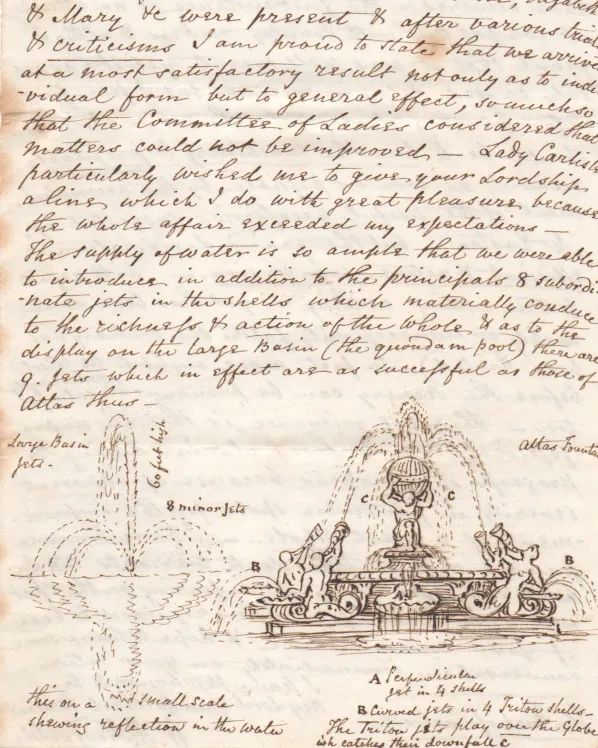 & Mary &c were present & after various trials
& criticisms I am proud to state that we arrive
at a most satisfactory result not only as to indi
-vidual form but to general effect, so much so
that the Committee of Ladies considered that
matters could not be improved — Lady Carlisle
particularly wished me to give your Lordship
a line, which I do with great pleasure, because
the whole affair exceeded my expectations —
The supply of water is so ample that we were able
to introduce in addition to the principals 8 subordi
-nate jets in the shells which materially conduce
to the richness & action of the whole, & as to the
display on the large Basin (the quondam pool) there are
9. jets which in effect are as successful as those of
Atlas thus —
Large Basin
jets —
60 feet high
8 minor jets
Atlas Fountain
C
C
B
B
A Perpendicular
jet in 4 shells
B Curved jets in 4 Triton shells —
The Triton jets play over the Globe
wh catches their downfall C
this on a small scale
shewing reflection in the water